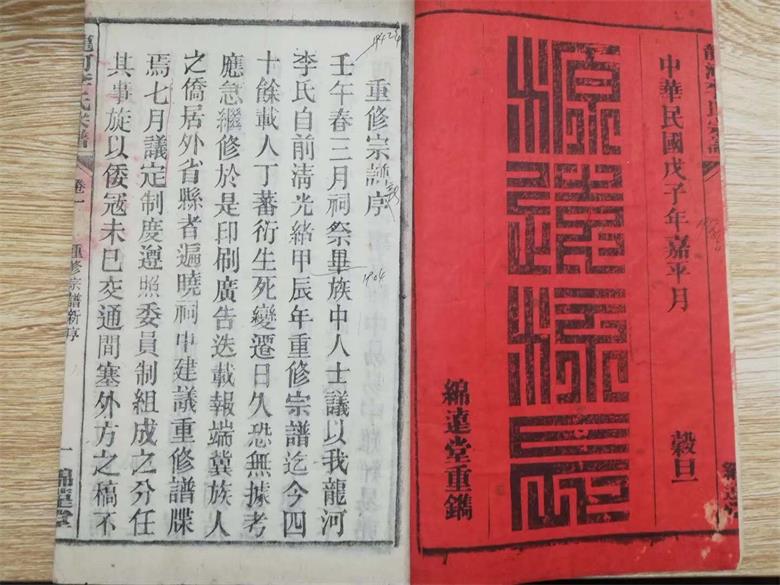 中華民國戊子年嘉平月 穀旦
源遠流長
綿遠堂重鐫
重修宗譜序
壬午春三月祠祭畢族中人士議以我龍河
李氏自前清光緒甲辰年重修宗譜迄今四
1904
十餘載人丁蕃衍生死變遷日久恐無據考
應急繼修於是印刷廣告迭載報端冀族人
之僑居外省縣者遍曉祠中建議重修譜牒
焉七月議定制度遵照委員制組成之分任
其事旋以倭寇未已交通間塞外方之稿不
龍河李氏宗譜 卷一 重修宗譜新序 一 綿遠堂